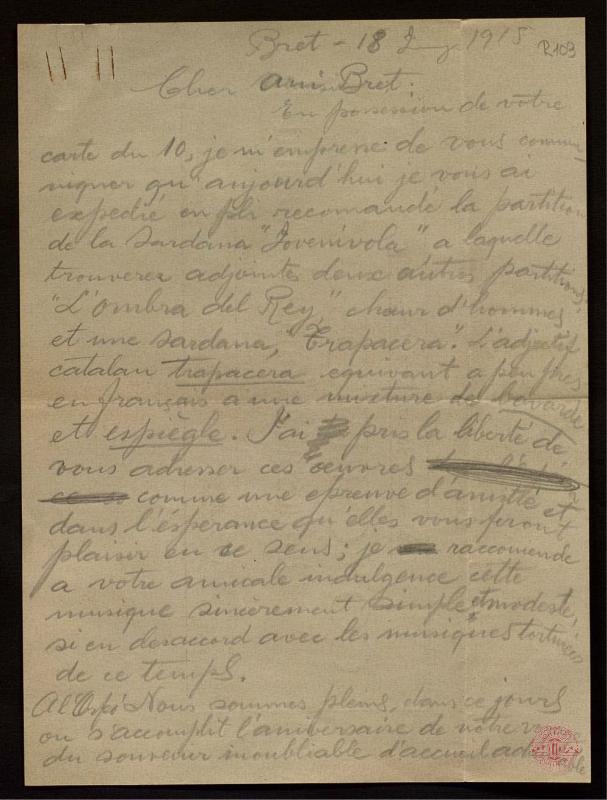 Bret - 18 1915
R109
Cher ami Bret:
En possession de votre
carte du 10, je m'empresse de vous commu-
niquer qu'aujourd'hui je vous ai
expedié en pli recomandé la partition
de la sardana "Jovenívola" a laquelle
trouverez adjointes deux autres partitions
"L'ombra del Rey," chœur d'hommes
et une sardana, "Trapacera". L'adjectif
catalan trapacera equivant a peu près
en français a une mixture de bavarde
et espiègle. J'ai pris la liberté de
vous adresser ces œuvres
comme une epreuve d'amitié et
dans l'ésperance qu'elles vous feront
plaisir en ce sens; je raccomende
a votre amicale indulgence cette
musique sincèrement simple et modeste,
si en desaccord avec les musiques torturées
de ce temps.
A l'Orfeó Nous sommes pleins, dans ce jours
ou s'accomplit l'aniversaire de notre
du souvenir inoubliable d'accueil